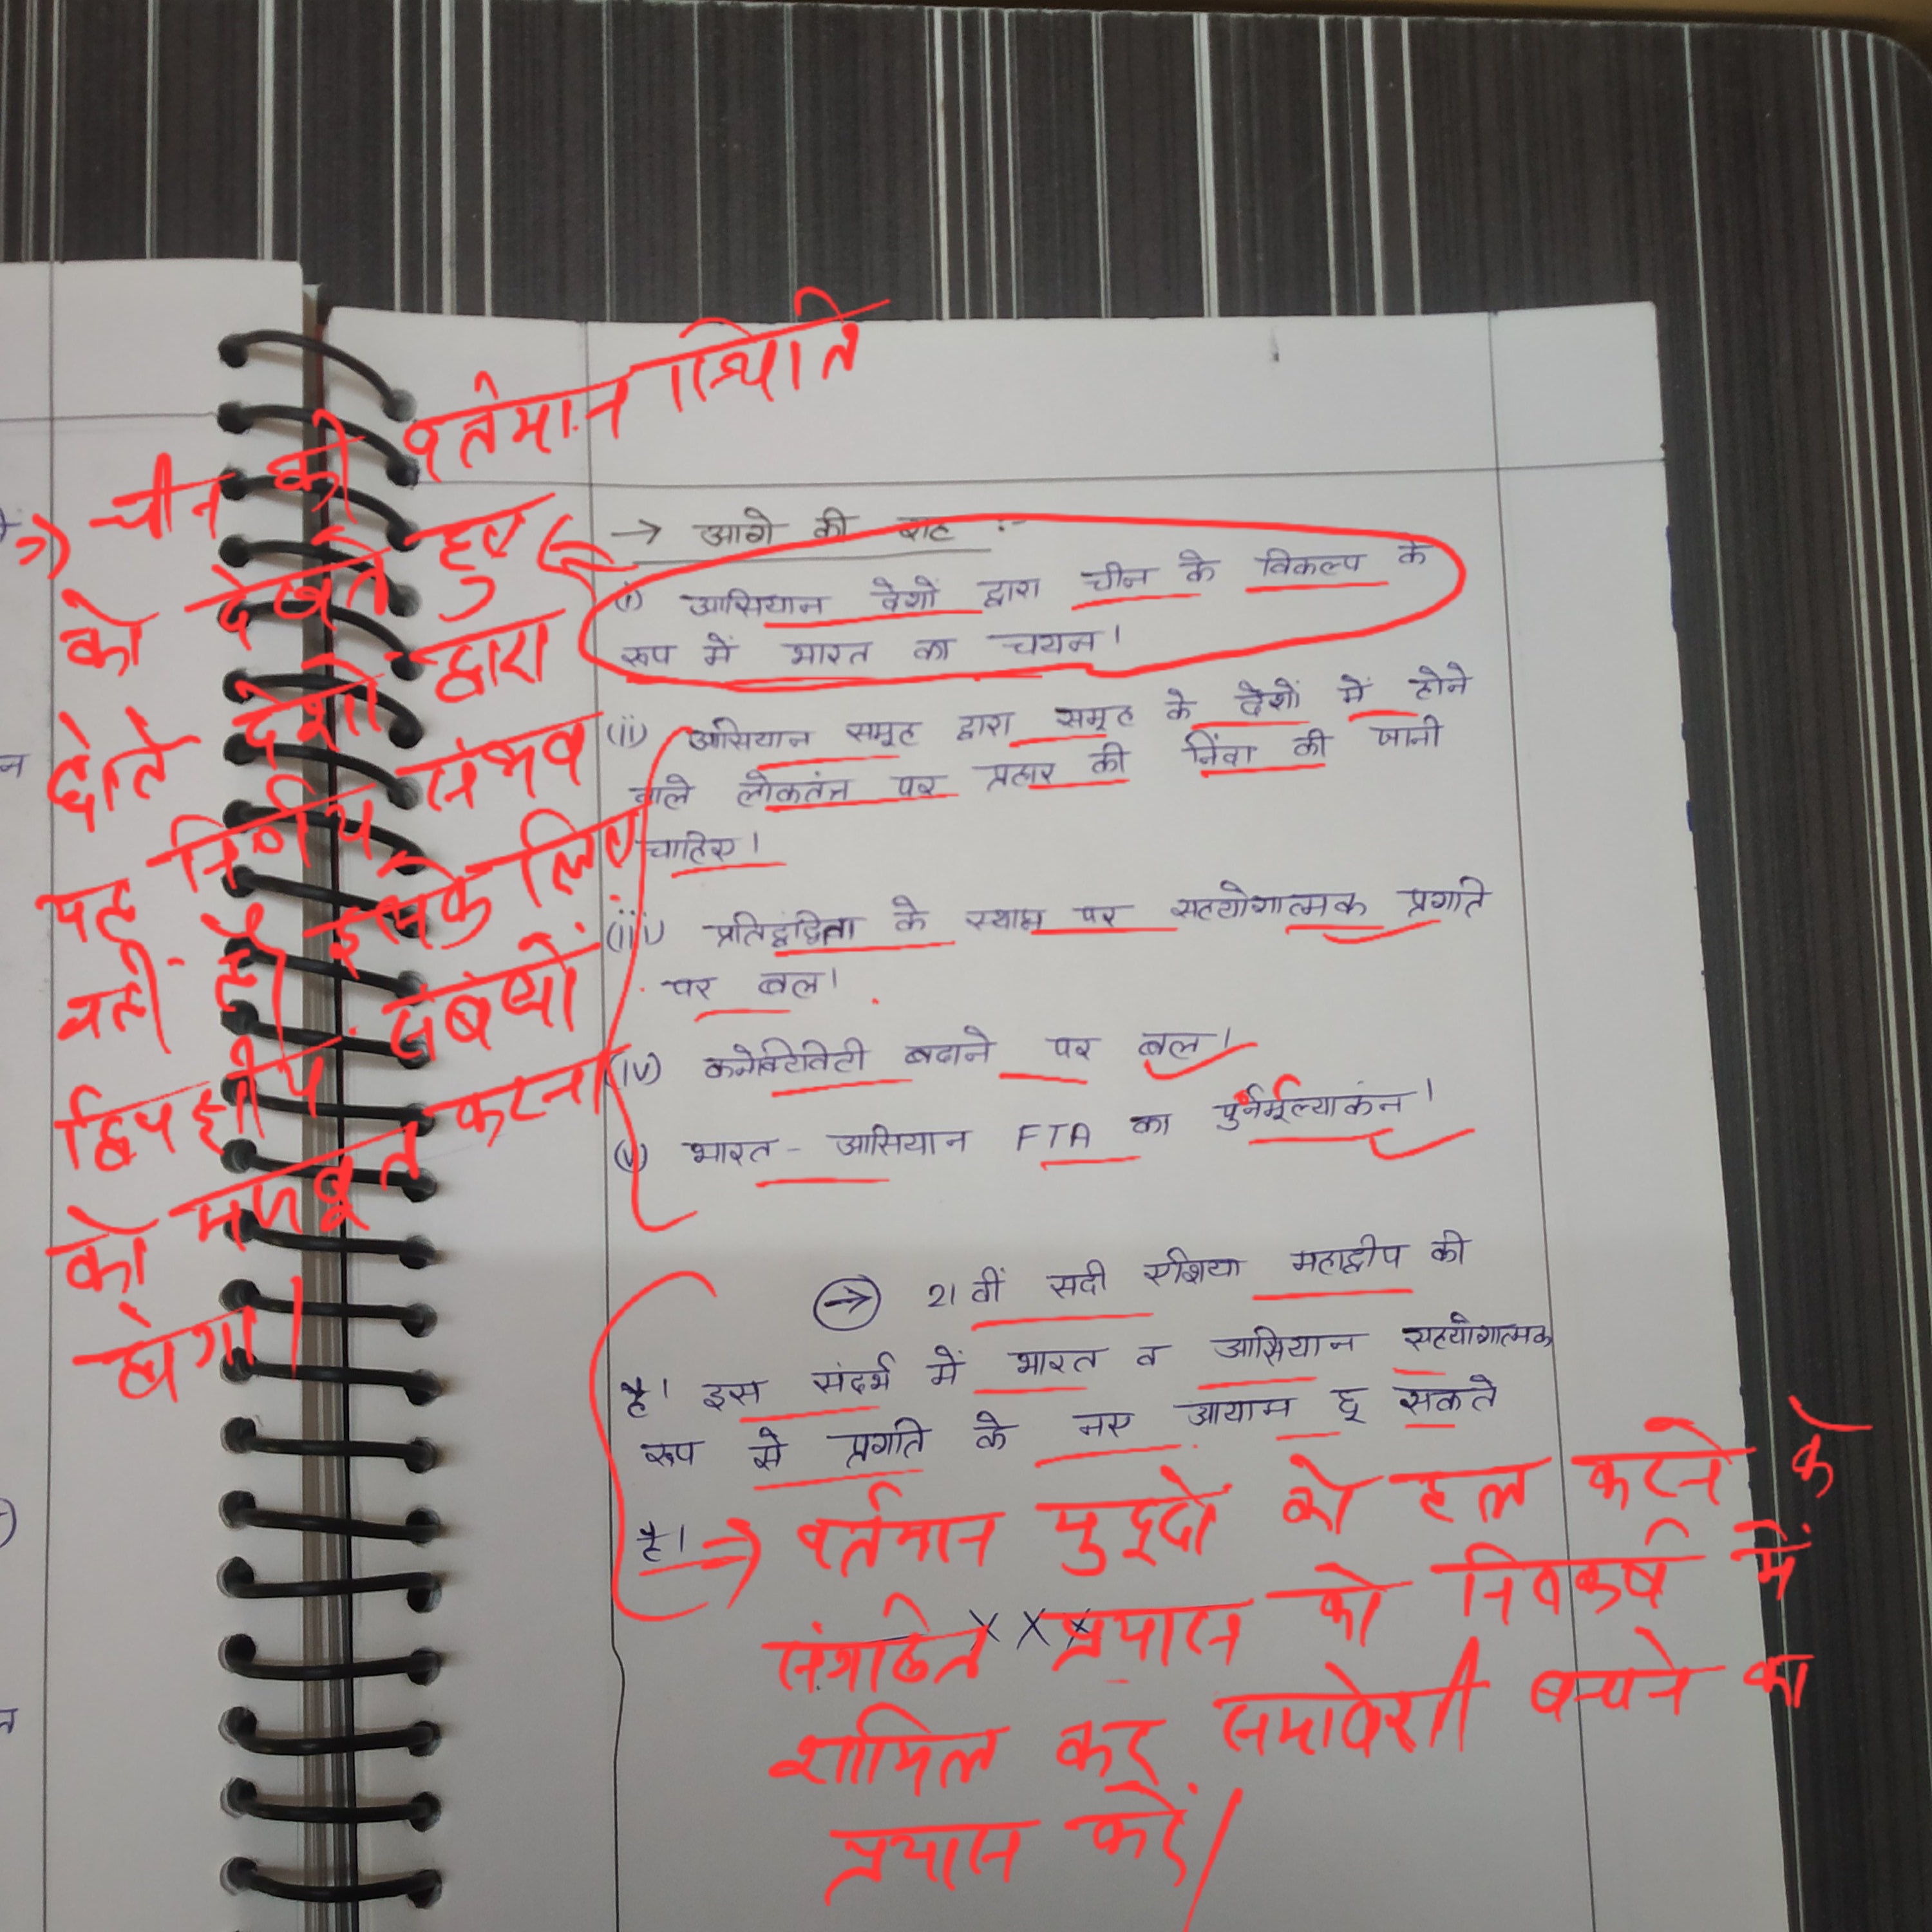 चीन की वर्तमान स्थिति
को देखते हुए
छोटे देशों द्वारा
यह निर्णय संभव
नहीं है। इसके लिए
द्विपक्षीय संबंधों
को मजबूत करना
होगा।
→ आगे की राह :-
(i) आसियान देशों द्वारा चीन के विकल्प के
रूप में भारत का चयन।
(ii) आसियान समूह द्वारा समूह के देशों में होने
वाले लोकतंत्र पर प्रहार की निंदा की जानी
चाहिए।
(iii) प्रतिद्वंद्विता के स्थान पर सहयोगात्मक प्रगति
पर बल।
(iv) कनेक्टिविटी बढाने पर बल।
(v) भारत - आसियान FTA का पुर्नमूल्याकंन।
→ 21 वीं सदी एशिया महाद्वीप की
है। इस संदर्भ में भारत व आसियान सहयोगात्मक
रूप से प्रगति के नए आयाम छू सकते
है।
→ वर्तमान मुद्दों को हल करने के
संगठित प्रयास को निष्कर्ष में
शामिल कर समावेशी बनाने का
प्रयास करें।
x x x
न